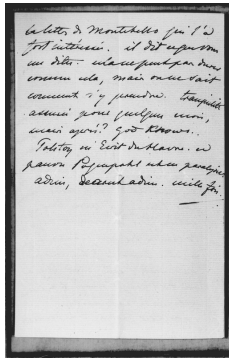 la lettre de Montebello qui l'a
fort intéressé. il dit que vous
me dites. cela ne peut pas durer
comme cela, mais on ne sait
comment s'y prendre. tranquillité
assurée pour quelques mois,
mais après? God knows.
Tolstoy m'écrit du Havre. ce
pauvre est en paralysie
adieu, adieu. mille fois.